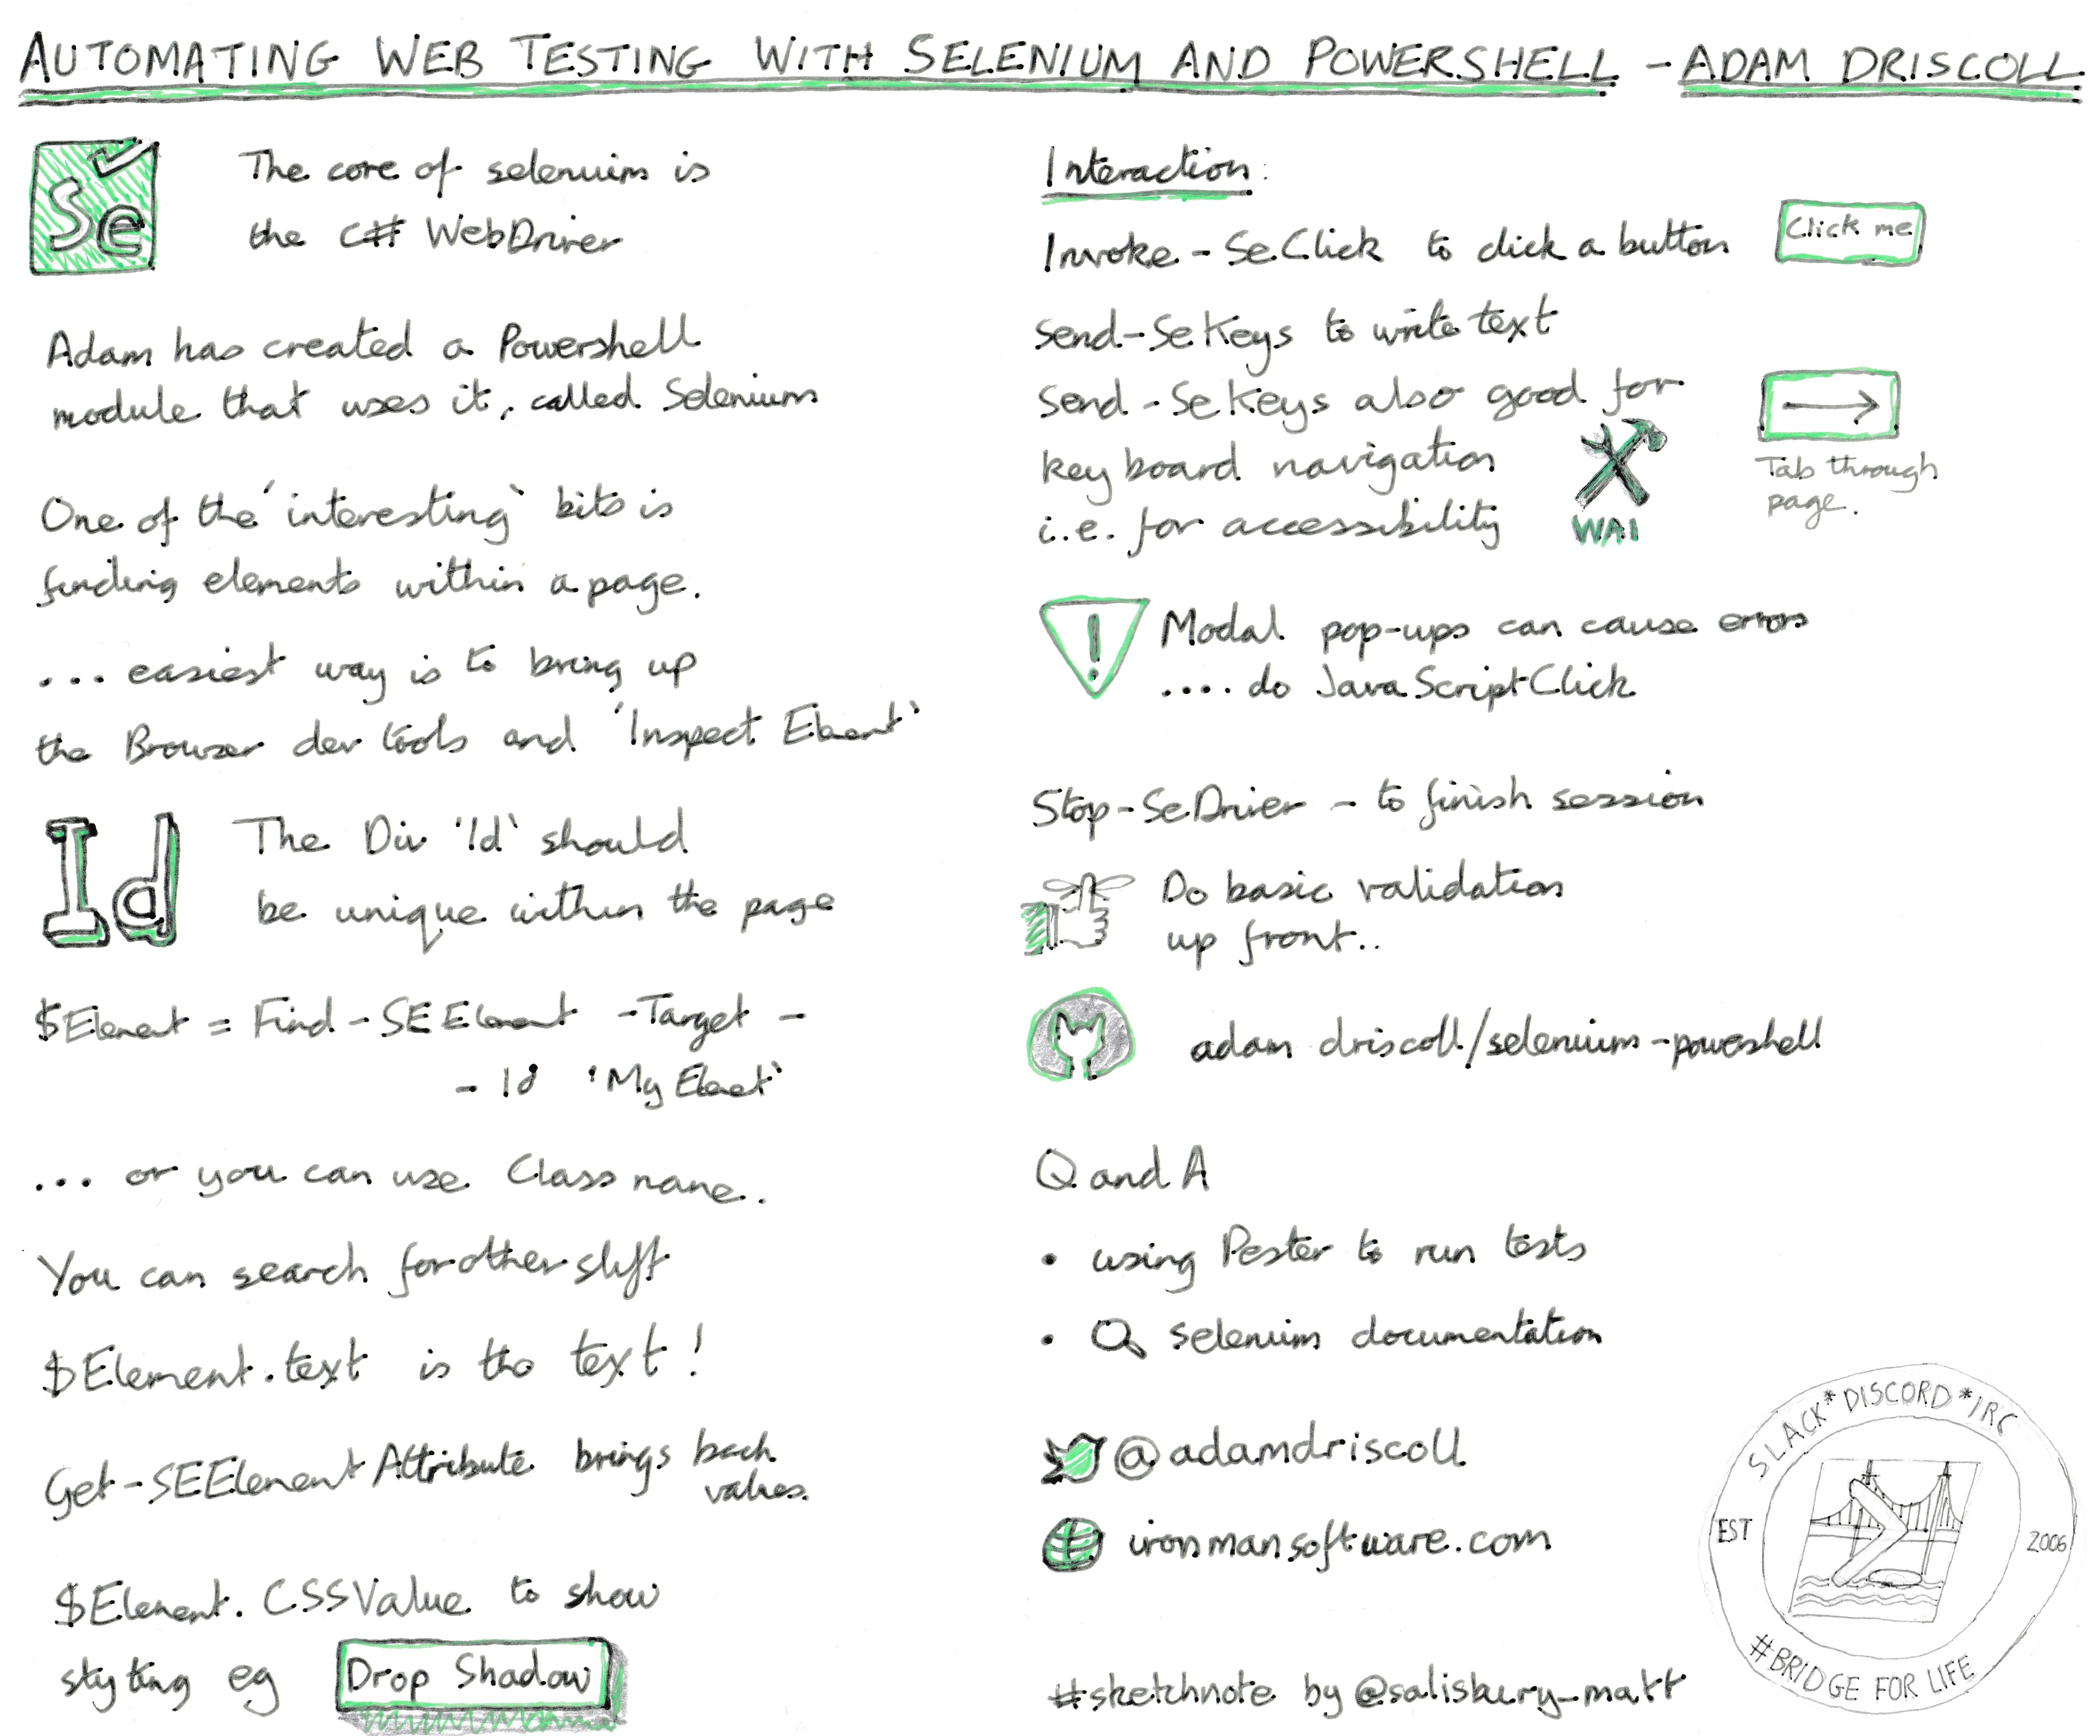 AUTOMATING WEB TESTING WITH SELENIUM AND POWERSHELL - ADAM DRISCOLL
Se
The core of selenium is
the C# WebDriver
Adam has created a Powershell
module that uses it, called Selenium
One of the 'interesting' bits is
finding elements within a page.
... easiest way is to bring up
the Browser dev tools and 'Inspect Element'
Id
The Div 'Id' should
be unique within the page
$Element = Find-SEElement -Target -
- Id 'My Element'
... or you can use Class name..
You can search for other stuff
$Element.text is the text!
Get-SEElementAttribute brings back
values.
$Element.CSSValue to show
styling eg
Drop Shadow
Interaction:
Invoke-SeClick to click a button
Click me
Send-SeKeys to write text
Send-SeKeys also good for
keyboard navigation
i.e. for accessibility
WAI
Tab through
page.
! Modal pop-ups can cause errors
.... do JavaScriptClick
Stop-SeDriver - to finish session
Do basic validation
up front..
adam driscoll/selenium-powershell
Q and A
• using Pester to run tests
• selenium documentation
@adamdriscoll
ironmansoftware.com
#sketchnote by @salisbury_matt
SLACK*DISCORD*IRC
EST 2006
#BRIDGE FOR LIFE